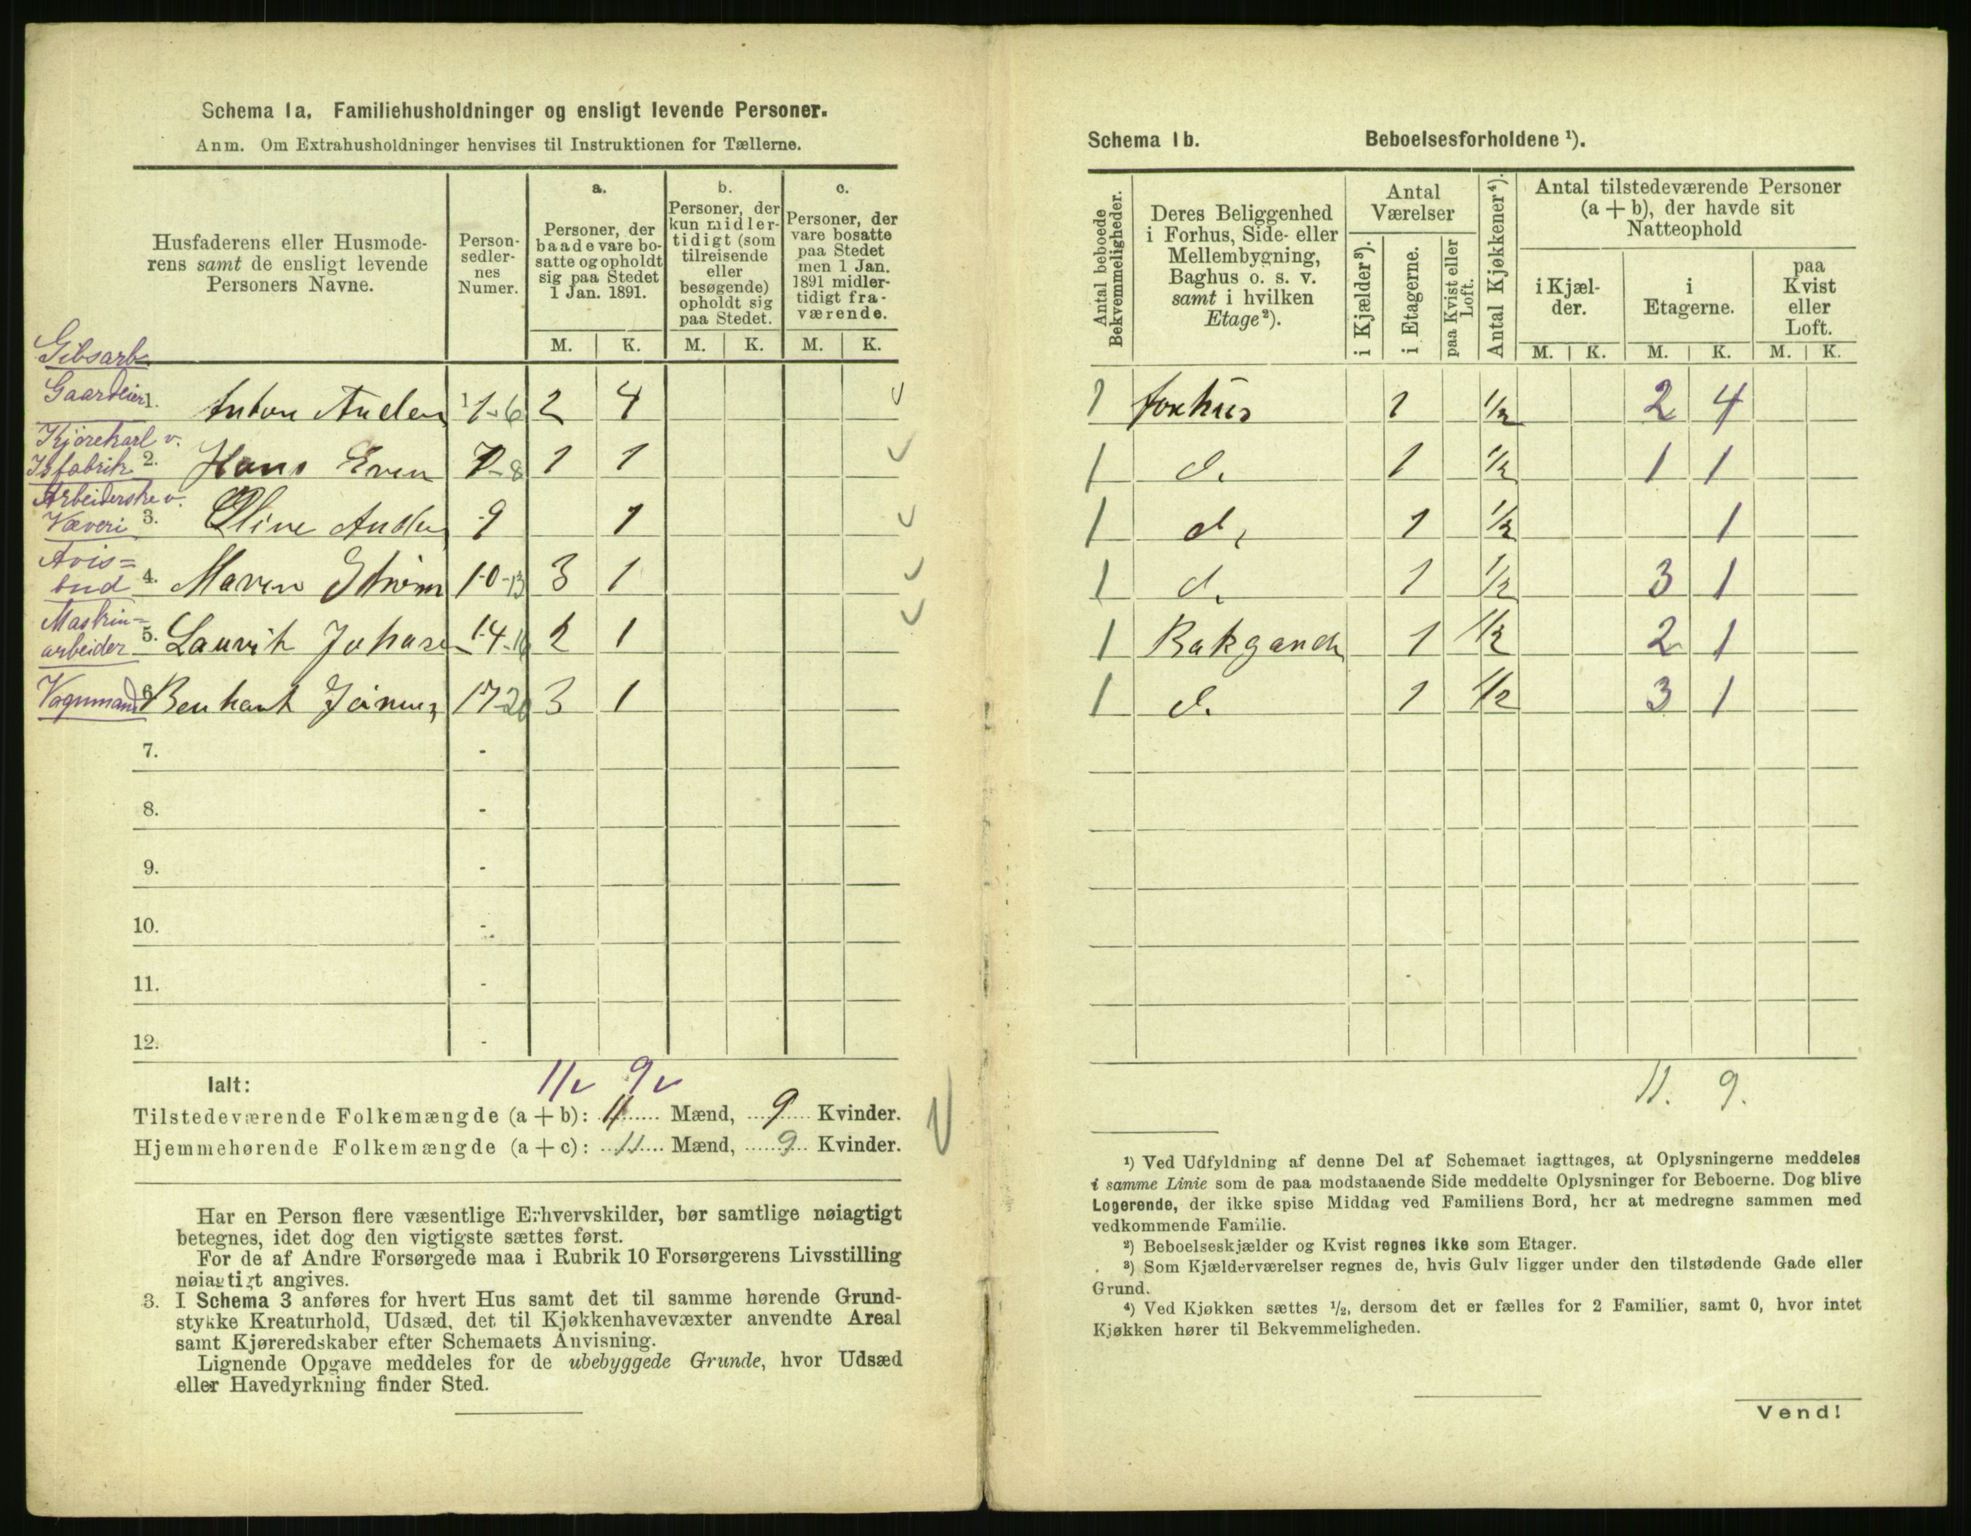 Schema 1a. Familiehusholdninger og ensligt levende Personer.
Anm. Om Extrahusholdninger henvises til Instruktionen for Tællerne.
Husfaderens eller Husmode-
rens samt de ensligt levende
Personers Navne.
Person-
sedler-
nes
Numer.
a.
Personer, der
baade vare bo-
satte og opholdt
sig paa Stedet
1 Jan. 1891.
b.
Personer, der
kun midler-
tidigt (som
tilreisende
eller
besøgende)
opholdt sig
paa Stedet.
c.
Personer, der
vare bosatte
paa Stedet
men 1 Jan.
1891 midler-
tidigt fra-
værende.
M. K. M. K. M. K.
Gibsarb.
Gaardeier 1. Anton Anders 1-6 2 4
Kjørekarl v.
Isfabrik 2. Hans Even 7-8 1 1
Arbeiderske v.
Væveri 3. Oline Ander 9 1
Avis=
bud 4. Maren Strøm 10-13 3 1
Maskin=
arbeider 5. Laurik Johans 14-16 2 1
Vognmand 6. Benhart 17-20 3 1
7. -
8. -
9. -
10. -
11. -
12. -
Ialt: 11 9
Tilstedeværende Folkemængde (a + b): 11 Mænd, 9 Kvinder.
Hjemmehørende Folkemængde (a + c): 11 Mænd, 9 Kvinder.
Har en Person flere væsentlige Erhvervskilder, bør samtlige nøiagtigt
betegnes, idet dog den vigtigste sættes først.
For de af Andre Forsørgede maa i Rubrik 10 Forsørgerens Livsstilling
nøiagtigt angives.
3. I Schema 3 anføres for hvert Hus samt det til samme hørende Grund-
stykke Kreaturhold, Udsæd, det til Kjøkkenhavevæxter anvendte Areal
samt Kjøreredskaber efter Schemaets Anvisning.
Lignende Opgave meddeles for de ubebyggede Grunde, hvor Udsæd
eller Havedyrkning finder Sted.
Schema 1b. Beboelsesforholdene ¹).
Antal beboede
Bekvemmeligheder.
Deres Beliggenhed
i Forhus, Side- eller
Mellembygning,
Baghus o. s. v.
samt i hvilken
Etage²).
Antal
Værelser
i Kjælder³).
i Etagerne.
paa Kvist eller
Loft.
Antal Kjøkkener⁴).
Antal tilstedeværende Personer
(a + b), der havde sit
Natteophold
i Kjæl-
der.
i
Etagerne.
paa
Kvist
eller
Loft.
M. K. M. K. M. K.
1 forhus 1 1/2 2 4
1 d. 1 1/2 1 1
1 d. 1 1/2 1
1 d. 1 1/2 3 1
1 Bakgaard 1 1/2 2 1
1 d. 1 1/2 3 1
11. 9.
¹) Ved Udfyldning af denne Del af Schemaet iagttages, at Oplysningerne meddeles
i samme Linie som de paa modstaaende Side meddelte Oplysninger for Beboerne. Dog blive
Logerende, der ikke spise Middag ved Familiens Bord, her at medregne sammen med
vedkommende Familie.
²) Beboelseskjælder og Kvist regnes ikke som Etager.
³) Som Kjælderværelser regnes de, hvis Gulv ligger under den tilstødende Gade eller
Grund.
⁴) Ved Kjøkken sættes ¹/₂, dersom det er fælles for 2 Familier, samt 0, hvor intet
Kjøkken hører til Bekvemmeligheden.
Vend!